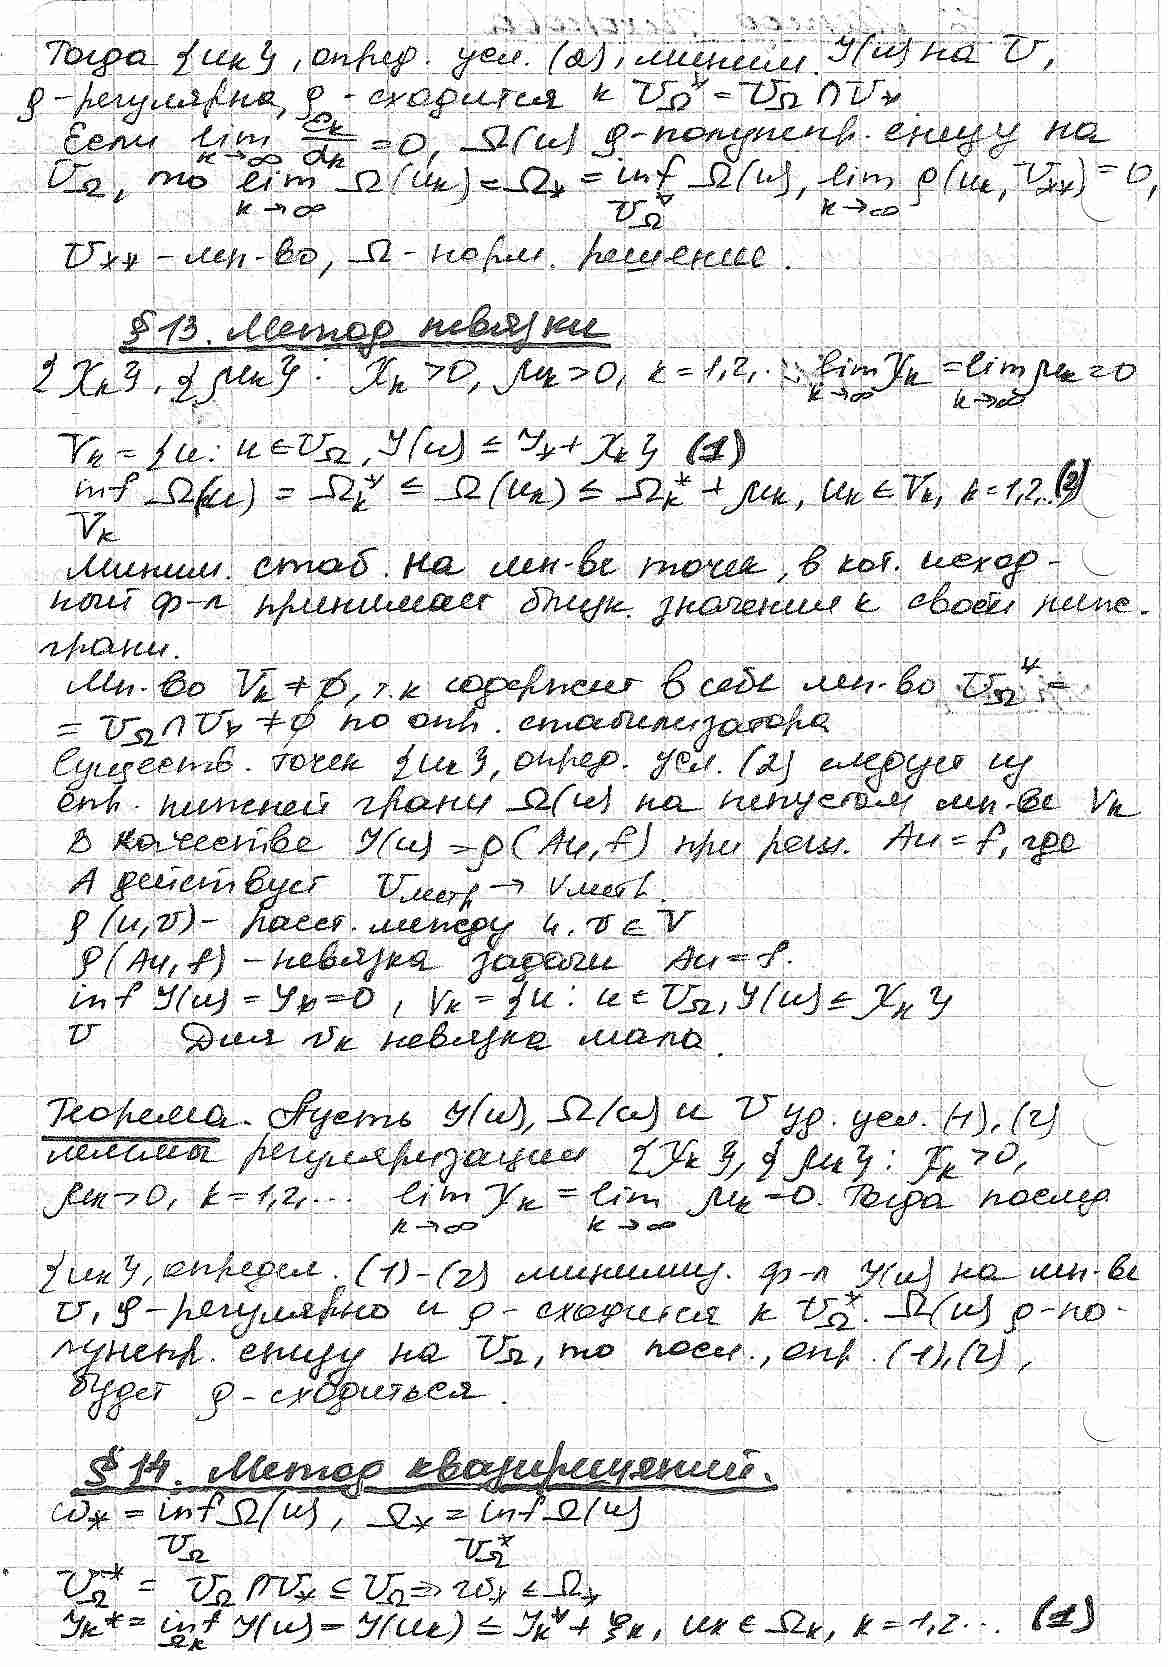 Тогда {uₖ}, опред. усл. (2), миним. J(u) на U,
ρ-регулярна, ρ-сходится к U_Ω^* = U_Ω ∩ U_*
Если lim_{k→∞} /αₖ = 0, Ω(u) ρ-полунепр. снизу на
U_Ω, то lim_{k→∞} Ω(uₖ) = Ω_* = inf_{U_Ω^*} Ω(u), lim_{k→∞} ρ(uₖ, U_**) = 0,
U_** - мн-во, Ω - норм. решение.
§ 13. Метод невязки
{χₖ}, {μₖ}: χₖ > 0, μₖ > 0, k = 1,2,... lim_{k→∞} χₖ = lim_{k→∞} μₖ = 0
Vₖ = {u: u ∈ U_Ω, J(u) ≤ J_* + χₖ} (1)
inf_{Vₖ} Ω(u) = Ωₖ^* ≤ Ω(uₖ) ≤ Ωₖ^* + μₖ, uₖ ∈ Vₖ, k = 1,2,.. (2)
Миним. стаб. на мн-ве точек, в кот. исход-
ный ф-л принимает близк. значения к своей ниж.
грани.
Мн-во Vₖ ≠ ∅, т.к содержит в себе мн-во U_Ω^* =
= U_Ω ∩ U_* ≠ ∅ по опр. стабилизатора
Существ. точек {uₖ}, опред. усл. (2) следует из
опр. нижней грани Ω(u) на непустом мн-ве Vₖ
В качестве J(u) = ρ(Au, f) при реш. Au = f, где
А действует U_метр → V_метр.
ρ(u, v) - расст. между u, v ∈ V
ρ(Au, f) - невязка задачи Au = f.
inf_U J(u) = J_* = 0, Vₖ = {u: u ∈ U_Ω, J(u) ≤ χₖ}
Для uₖ невязка мала.
Теорема. Пусть J(u), Ω(u) и U уд. усл. (1), (2)
леммы регуляризации {χₖ}, {μₖ}: χₖ > 0,
μₖ > 0, k = 1,2,... lim_{k→∞} χₖ = lim_{k→∞} μₖ = 0. Тогда послед
{uₖ}, определ. (1)-(2) минимиз. ф-л J(u) на мн-ве
U, ρ-регулярно и ρ-сходится к U_Ω^*. Ω(u) ρ-по-
лунепр. снизу на U_Ω, то посл., опр. (1), (2),
будет ρ-сходиться.
§ 14. Метод квазирешений.
ω_* = inf_{U_Ω} Ω(u), Ω_* = inf_{U_Ω^*} Ω(u)
U_Ω^* = U_Ω ∩ U_* ⊆ U_Ω ⇒ ω_* ≤ Ω_*
Jₖ^* = inf_{Ωₖ} J(u) = J(uₖ) ≤ Jₖ^* + ξₖ, uₖ ∈ Ωₖ, k = 1,2... (1)